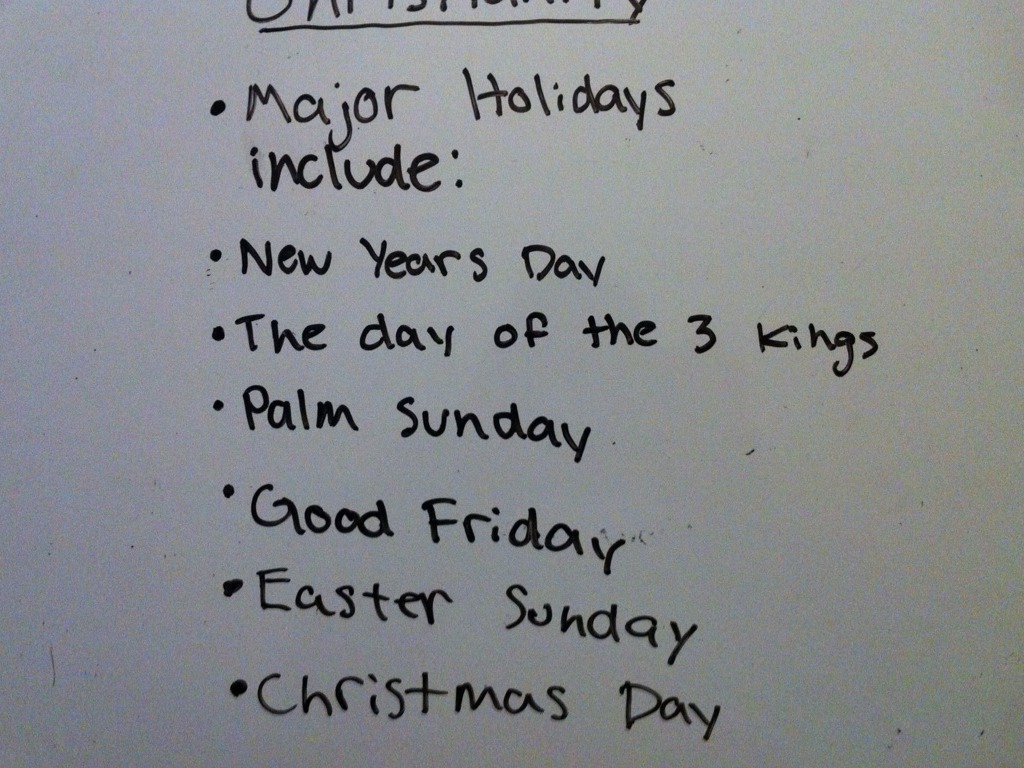 Christianity
• Major Holidays
include:
• New Years Day
• The day of the 3 Kings
• Palm Sunday
• Good Friday
• Easter Sunday
• Christmas Day